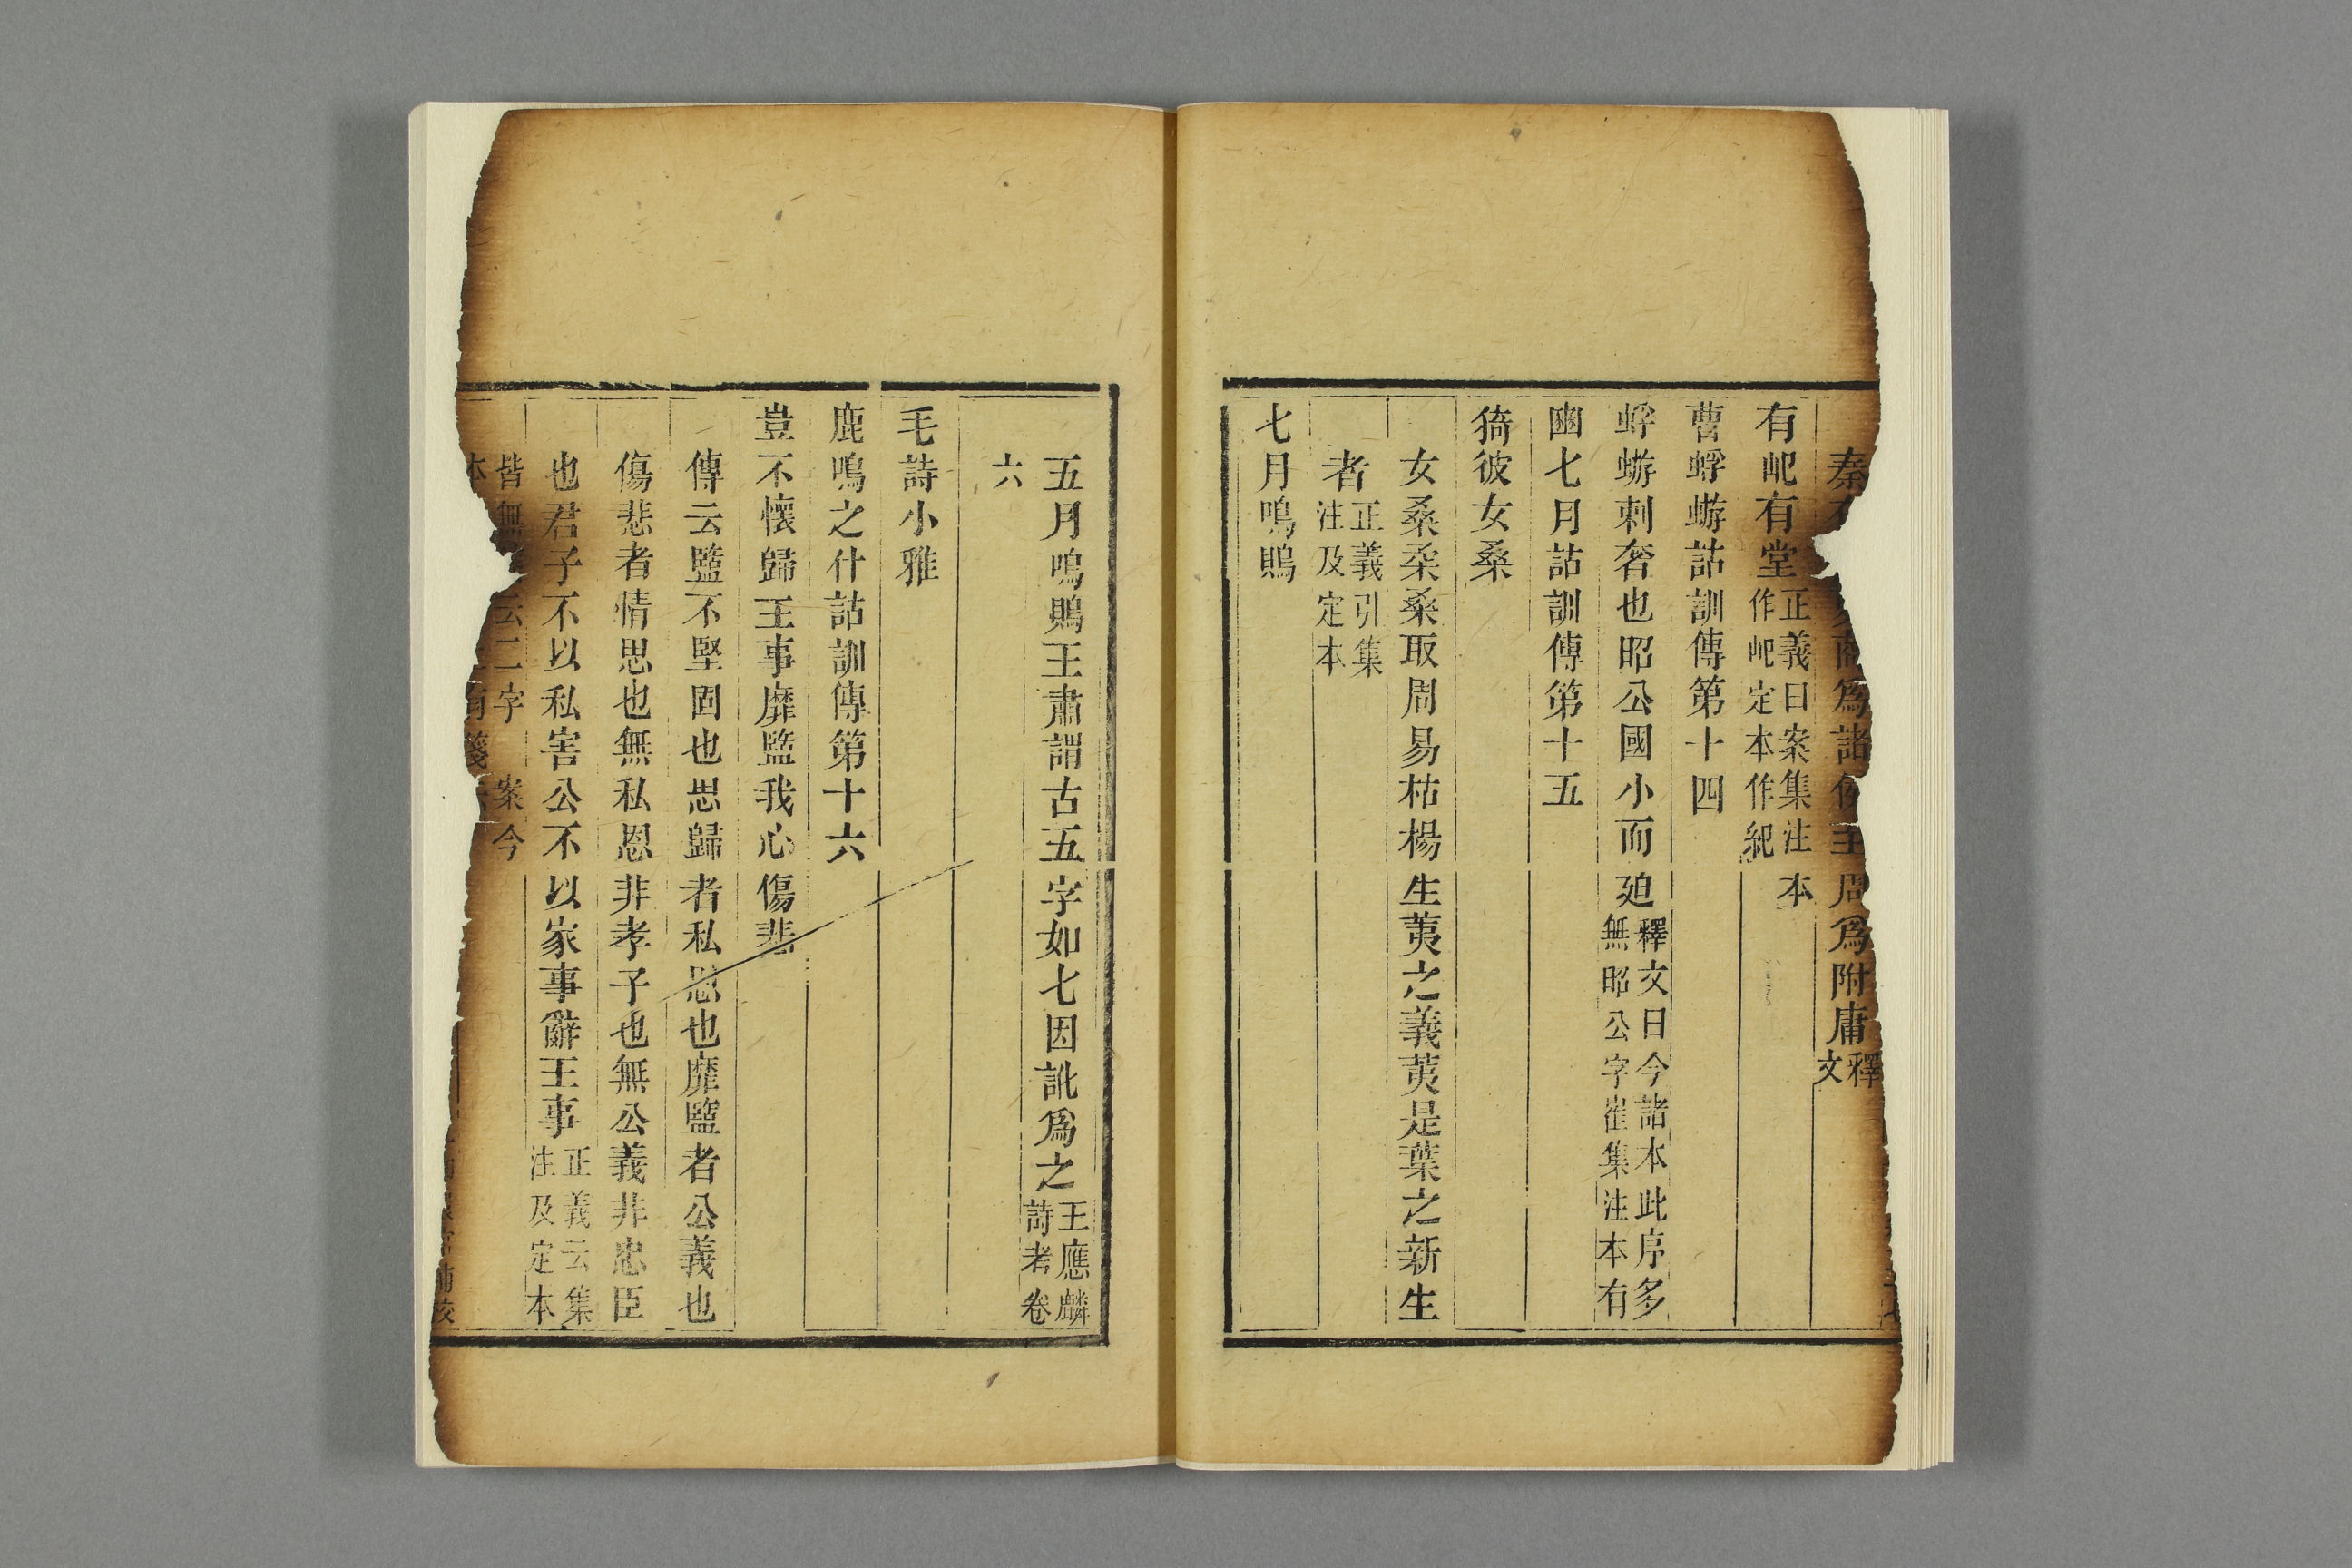 秦 爲諸 周爲附庸釋文
有屺有堂正義曰案集注本作屺定本作紀
曹蜉蝣詁訓傳第十四
蜉蝣刺奢也昭公國小而廹釋文曰今諸本此序多無昭公字崔集注本有
豳七月詁訓傳第十五
猗彼女桑
女桑桑柔桑取周易枯楊生荑之義荑是葉之新生
者正義引集注及定本
七月鳴鵙
五月鳴鵙王肅謂古五字如七因訛爲之王應麟詩考卷
六
毛詩小雅
鹿鳴之什詁訓傳第十六
豈不懷歸王事靡盬我心傷悲
傳云盬不堅固也思歸者私恩也靡盬者公義也
傷悲者情思也無私恩非孝子也無公義非忠臣
也君子不以私害公不以家事辭王事正義云集注及定本
皆無 云二字 案今 本 有箋
補校